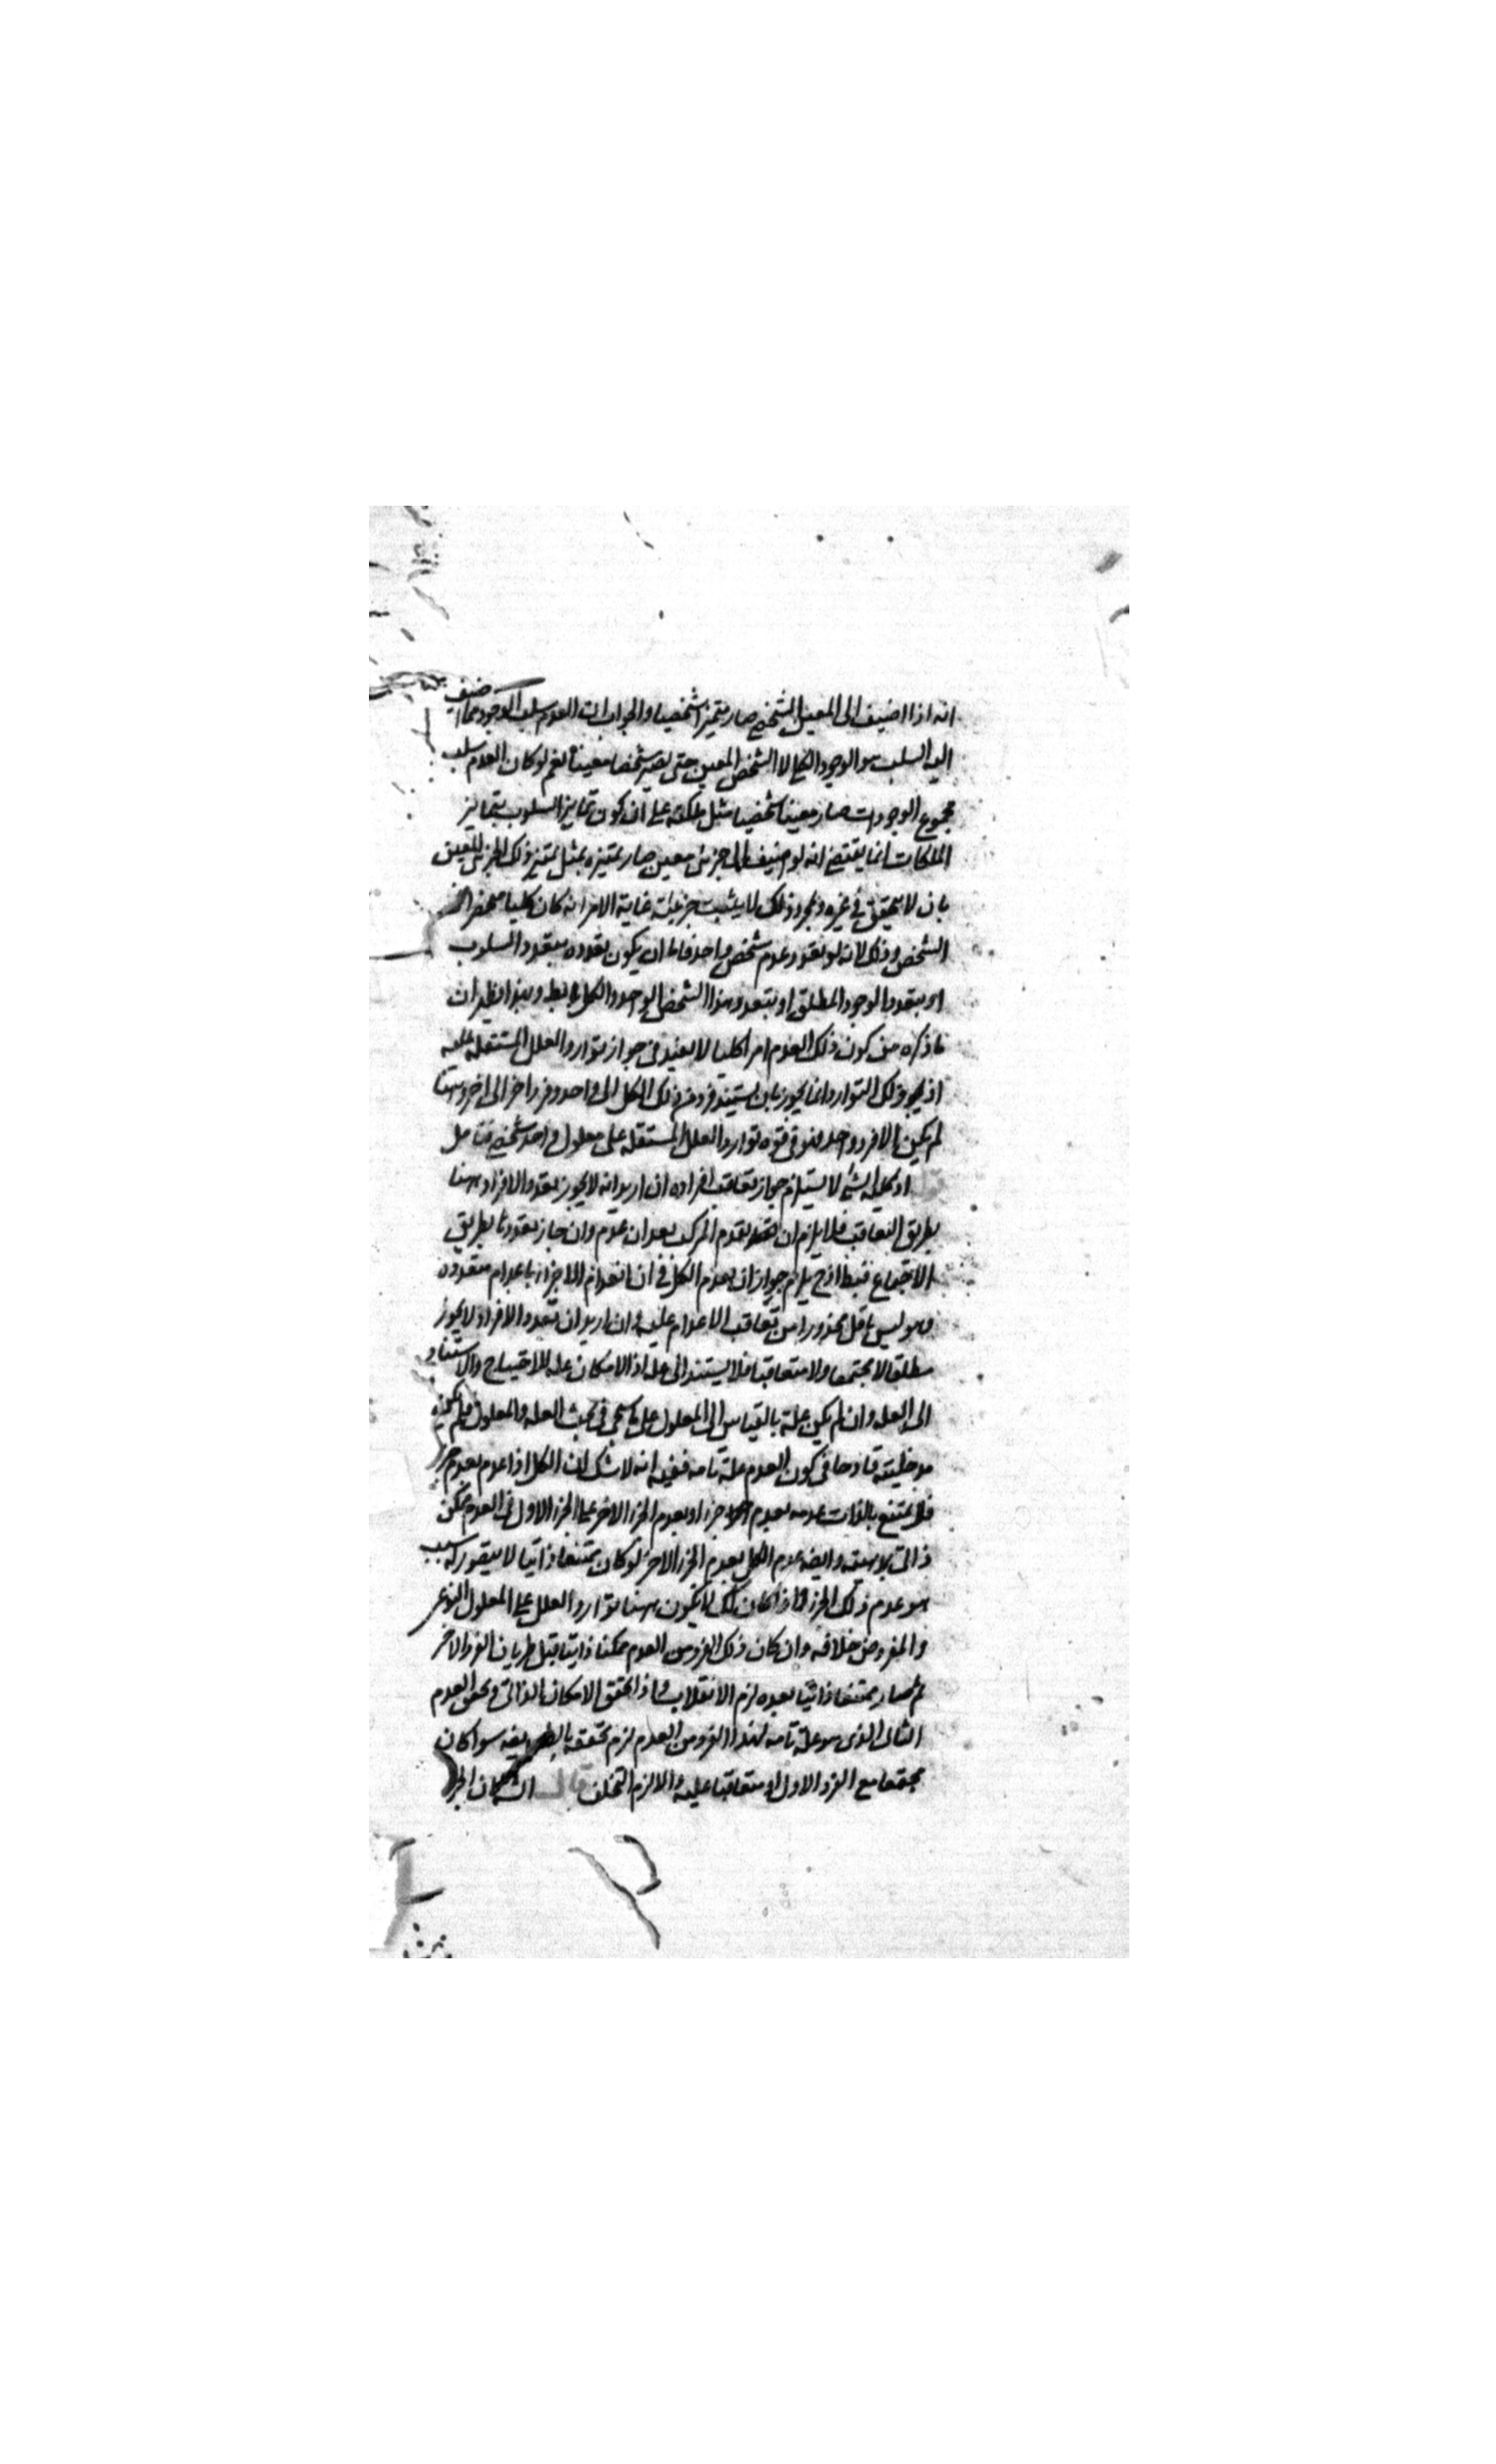 انه اذا اضيف الى المعين الشخصي صار بتميزه شخصيا والجواب ان العدم سلب الوجود فما اضيف
اليه السلب هو الوجود الكلي لا الشخص المعين حتى يصير شخصا معينا نعم لو كان العدم سلب
مجموع الوجودات صار معينا شخصيا مثل ملكته على ان كون تمايز السلوب بتمايز
الملكات انما يقتضي انه لو اضيف الى جزئي معين صار بتميزه بمثل تميز ذلك الجزئي المعين
بان لا يتحقق في غيره ومجرد ذلك لا يثبت جزئيته غاية الامر انه كان كليا منحصرا في
الشخص وذلك لانه لو تعدد عدم شخص واحد فاما ان يكون تعدده بتعدد السلوب
او بتعدد الوجود المطلق او بتعدد هذا الشخص الواحد والكل بط وبهذا يظهر ان
ما ذكره من كون ذلك العدم امرا كليا لا يفيد في جواز توارد العلل المستقلة عليه
اذ ذلك التوارد انما يجوز بان يستند فرد من ذلك الكلي الى واحد وفرد اخر الى اخر وههنا
لم يكن الا فرد واحد فهو في قوة توارد العلل المستقلة على معلول واحد شخصي فتامل
قوله اذ كلية الشئ لا يستلزم جواز تعاقب افراده ان اريد انه لا يجوز تعدد الافراد ههنا
بطريق التعاقب فلا يلزم ان يعدم المركب بعد ان عدم وان جاز تعددها بطريق
الاجتماع فبط اذ ح يلزم جواز ان يعدم الكل في ان انعدام الاجزاء باعدام متعددة
وهو ليس باقل محذورا من تعاقب الاعدام عليه وان اريد ان تعدد الافراد لا يجوز
مطلقا لا مجتمعا ولا متعاقبا فلا يستند الى علة اذ الامكان علة للاحتياج والاستناد
الى العلة وان لم يكن علة بالقياس الى المعلول على ما سيجئ في بحث العلة والمعلول فلم يكن
مدخليته قادحا في كون العدم علة تامة ففيه انه لا شك ان الكل اذا عدم بعدم جزء
فلا يمتنع بالذات عدمه بعدم جزء او بعدم الجزء الاخر على الجزء الاول فهذا العدم ممكن
ذاتي بلا شبهة وايضا عدم الكل بعدم الجزء الاخر لو كان ممتنعا ذاتيا لا يتصور له سبب
هو عدم ذلك الجزء واذا كان كذلك لا يكون ههنا توارد العلل على المعلول النوعي
والمفروض خلافه وان كان ذلك الفرد من العدم ممكنا ذاتيا قبل طريان الفرد الاخر
ثم صار ممتنعا ذاتيا بعده لزم الانقلاب واذا تحقق الامكان الذاتي وتحقق العدم
الثاني الذي هو علة تامة لهذا الفرد من العدم لزم تحققه بالضرورة سواء كان
مجتمعا مع الفرد الاول او متعاقبا عليه والا لزم التخلف قال الشه كان الجزء